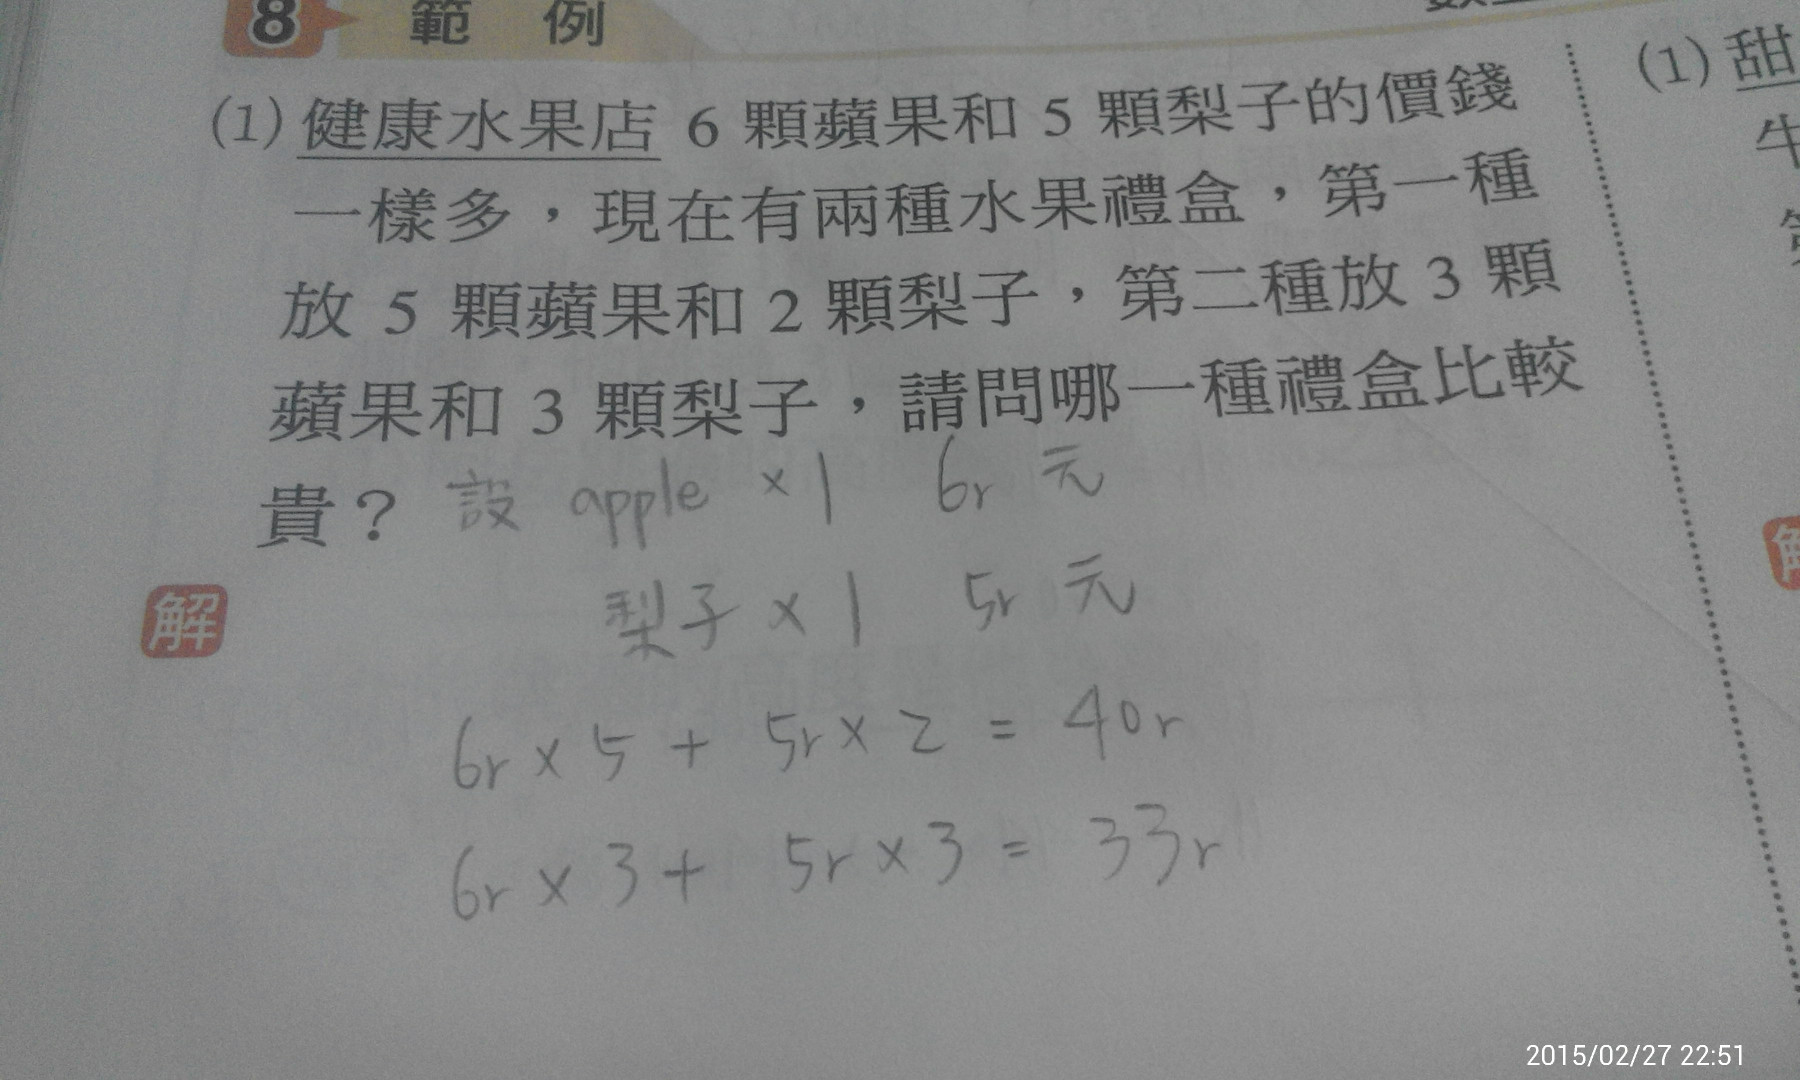 8 範 例
(1) 健康水果店 6 顆蘋果和 5 顆梨子的價錢
一樣多，現在有兩種水果禮盒，第一種
放 5 顆蘋果和 2 顆梨子，第二種放 3 顆
蘋果和 3 顆梨子，請問哪一種禮盒比較
貴？ 設 apple ×1 6r 元
梨子 ×1 5r 元
解
6r × 5 + 5r × 2 = 40r
6r × 3 + 5r × 3 = 33r
(1) 甜
牛
2015/02/27 22:51